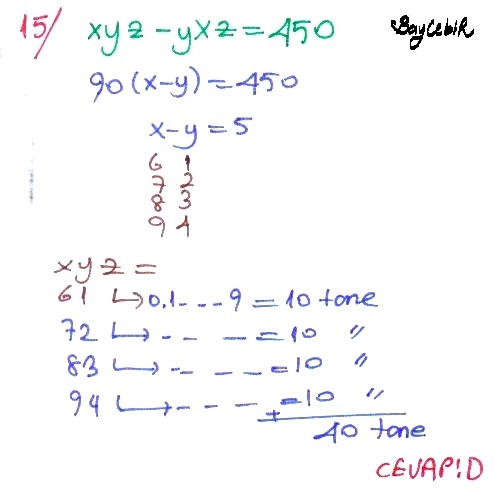 15/ xyz-yxz=450 BayCebiR
90(x-y)=450
x-y=5
6 1
7 2
8 3
9 4
xyz=
61 ↳0,1---9=10 tane
72 ↳-- -=10 "
83 ↳-- --=10 "
94 ↳--- -=10 "
+
40 tane
CEVAP!D